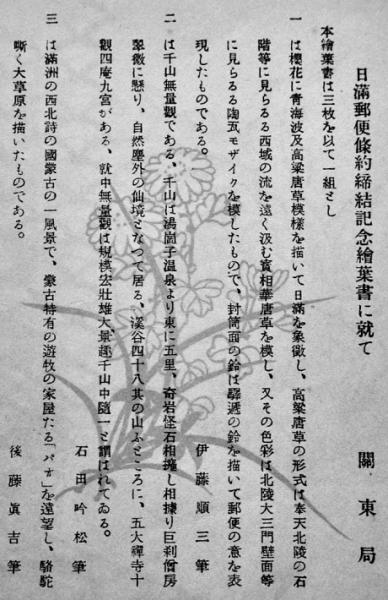 日滿郵便條約締結記念繪葉書に就て
關東局
本繪葉書は三枚を以て一組とし
一 は櫻花に青海波及高粱唐草模樣を描いて日滿を象徴し、高粱唐草の形式は奉天北陵の石
階等に見らるる西域の流を遠く汲む寳相華唐草を模し、又その色彩は北陵大三門壁面等
に見らるる陶瓦モザイクを模したもので、封筒面の鈴は驛遞の鈴を描いて郵便の意を表
現したものである。
伊藤順三筆
二 は千山無量觀である、千山は湯崗子温泉より東に五里、奇岩怪石相擁し相據り巨刹僧房
翠微に懸り、自然塵外の仙境となつて居る、溪谷四十八其の山ふところに、五大禪寺十
觀四庵九宮がある、就中無量觀は規模宏壯雄大、景趣千山中隨一と謂はれてゐる。
石田吟松筆
三 は滿洲の西北詩の國蒙古の一風景で、蒙古特有の遊牧の家屋たる「パオ」を遠望し、駱駝
嘶く大草原を描いたものである。
後藤眞吉筆